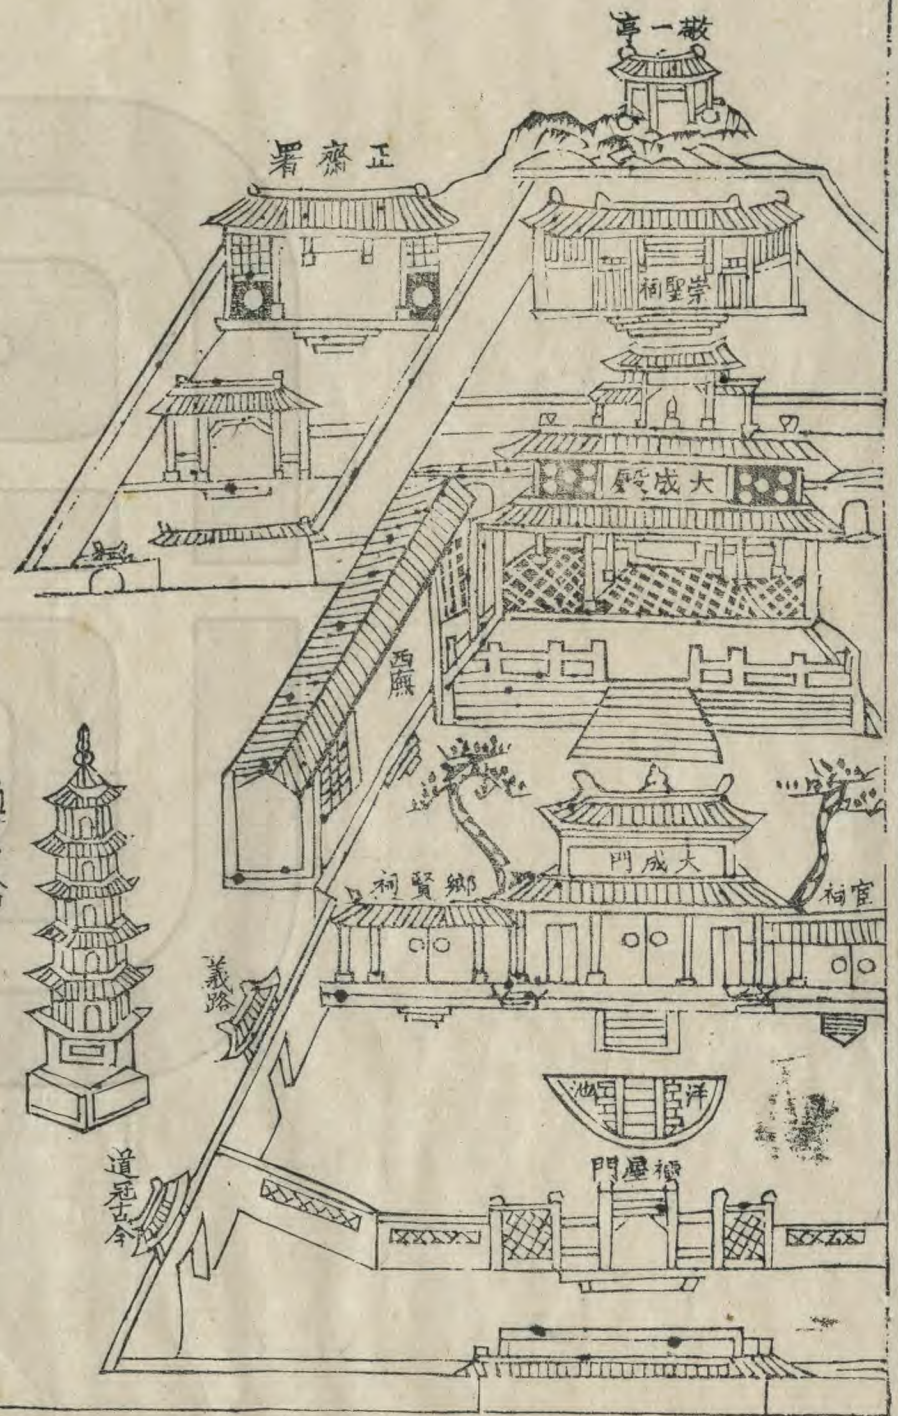 敬一亭
正齋署
崇聖祠
大成殿
西廡
大成門
鄉賢祠
宦祠
義路
泮池
櫺星門
道冠古今